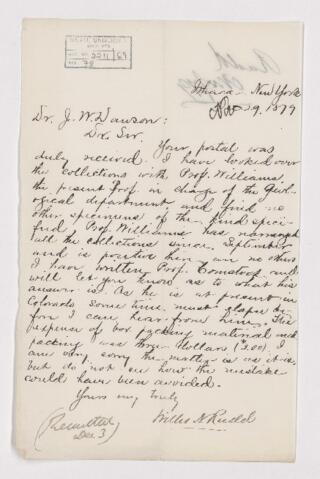 2211
69
79
Ithaca - New York
Nov 29, 1879
Dr. J. W. Dawson:
Dr. Sir.
Your postal was
duly received. I have looked over
the collections with Prof. Williams,
the present Prof. in charge of the Geol-
ogical department and find no
other specimens of the kind speci-
fied. Prof. Williams has
all the collections since September
and is positive there are no others
I have written Prof. Comstock and
will let you know as to what his
answer is. As he is at present in
Colorado some time must elapse be-
fore I can hear from him. The
expense of box packing material and
packing was three dollars ($3.00). I
am very sorry the matter is as it is,
but do not see how the mistake
could have been avoided.
Yours very truly
Willis N. Rudd
(Remitted
Dec. 3)